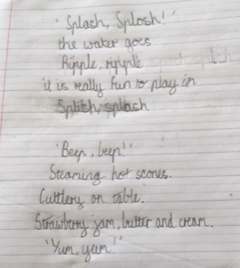 "Splash, Splosh!"
the water goes
Ripple, ripple
it is really fun to play in
Splish, splash
"Beep, beep!"
Steaming hot scones.
Cuttlery on table.
Strawberry jam, butter and cream.
"Yum, yum!"